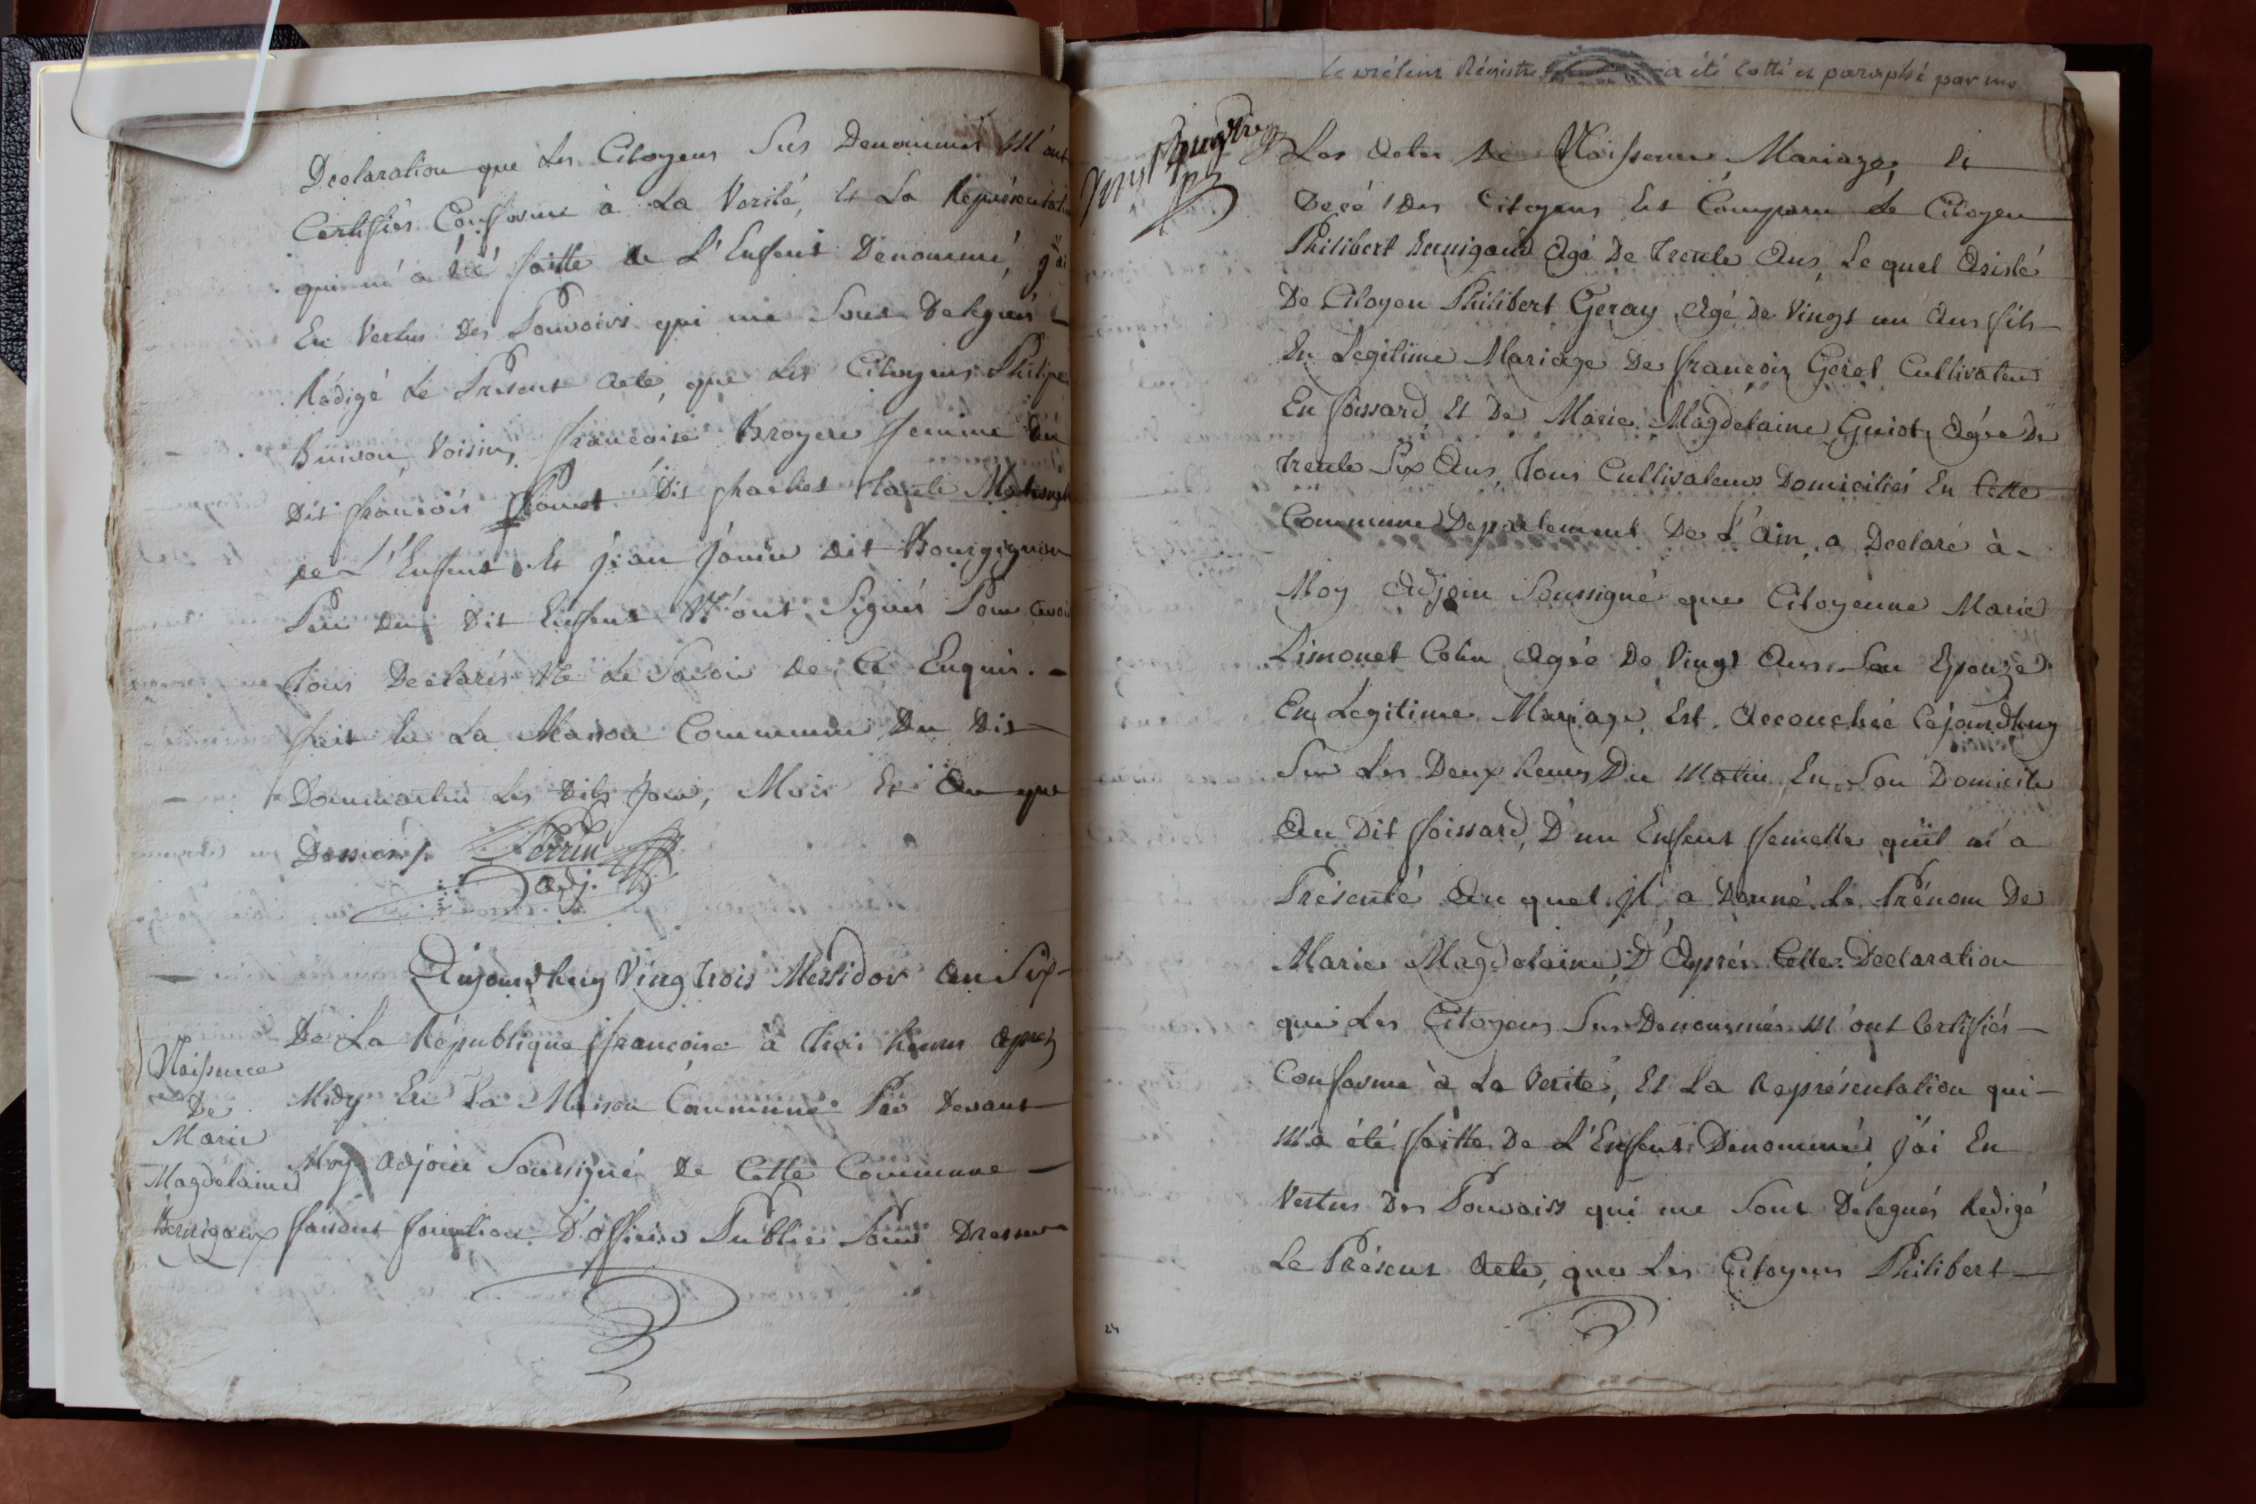 Declaration que Les Citoyens Sus Denommés M'ont
Certifiés Conforme à La Verité, Et La Représentation
qui m'a été faitte de L'Enfent Denommé, j'ai
En Vertus Des Pouvoirs qui me Sont Delegués
Rédigé Le Present Acte, que Les Citoyens Philipe
Buison Voisin, francoise Broyere femme Du
Dit francois Dit charlet tante
de L'Enfent Et jean janin dit Bourgignon
Du Dit Enfent N'ont Signés Pour avoir
Tous Declarés Ne Le Savoir De Ce Enquis. -
fait En La Maison Commune Du Dit
Dommartin Les Dits jour, Mois Et An que
Perrin
Adj.
Aujourdhuy Ving trois Messidor An Six
De La République francoise à trois heures Aprés
Midy En La Maison Commune Par Devant
Moy Adjoin Soussigné De Cette Commune
faisant fonction D'officier Public Pour Dresser
Naissence
De
Marie
Magdelaine
Bernigaux
Le présent Régistre a été cotté et paraphé par
Les Actes De Naissence, Mariage, Et
Décé Des Citoyens Est Comparu Le Citoyen
Philibert Bernigaud Agé De Trente Ans, Le quel Asisté
De Citoyen Philibert Geray Agé De Vingt un Ans fils
En Legitime Mariage De francois Gerel Cultivateur
En foissard, Et De Marie Magdelaine Guiot, Agée De
Trente Six Ans, Tous Cultivateurs Domiciliés En Cette
Commune Departement De L'Ain, a Declaré à
Moy Adjoin Soussigné que Citoyenne Marie
Limonet Colin Agée De Vingt Ans, Son Epouze
En Legitime Mariage, Est Accouchée Cejourdhuy
Sur Les Deux heures Du Matin En Son Domicile
Au Dit foissard, D'un Enfent femelle qu'il m'a
Présenté Au quel Il a Donné Le Prénom De
Marie Magdelaine D'Aprés Cette Declaration
que Les Citoyens Sus Denommés M'ont Certifiés
Conforme à La Verité, Et La Représentation qui
M'a été faitte De L'Enfent Denommé, j'ai En
Vertus Des Pouvoirs qui me Sont Délegués Redigé
Le Présent Acte, que Les Citoyens Philibert